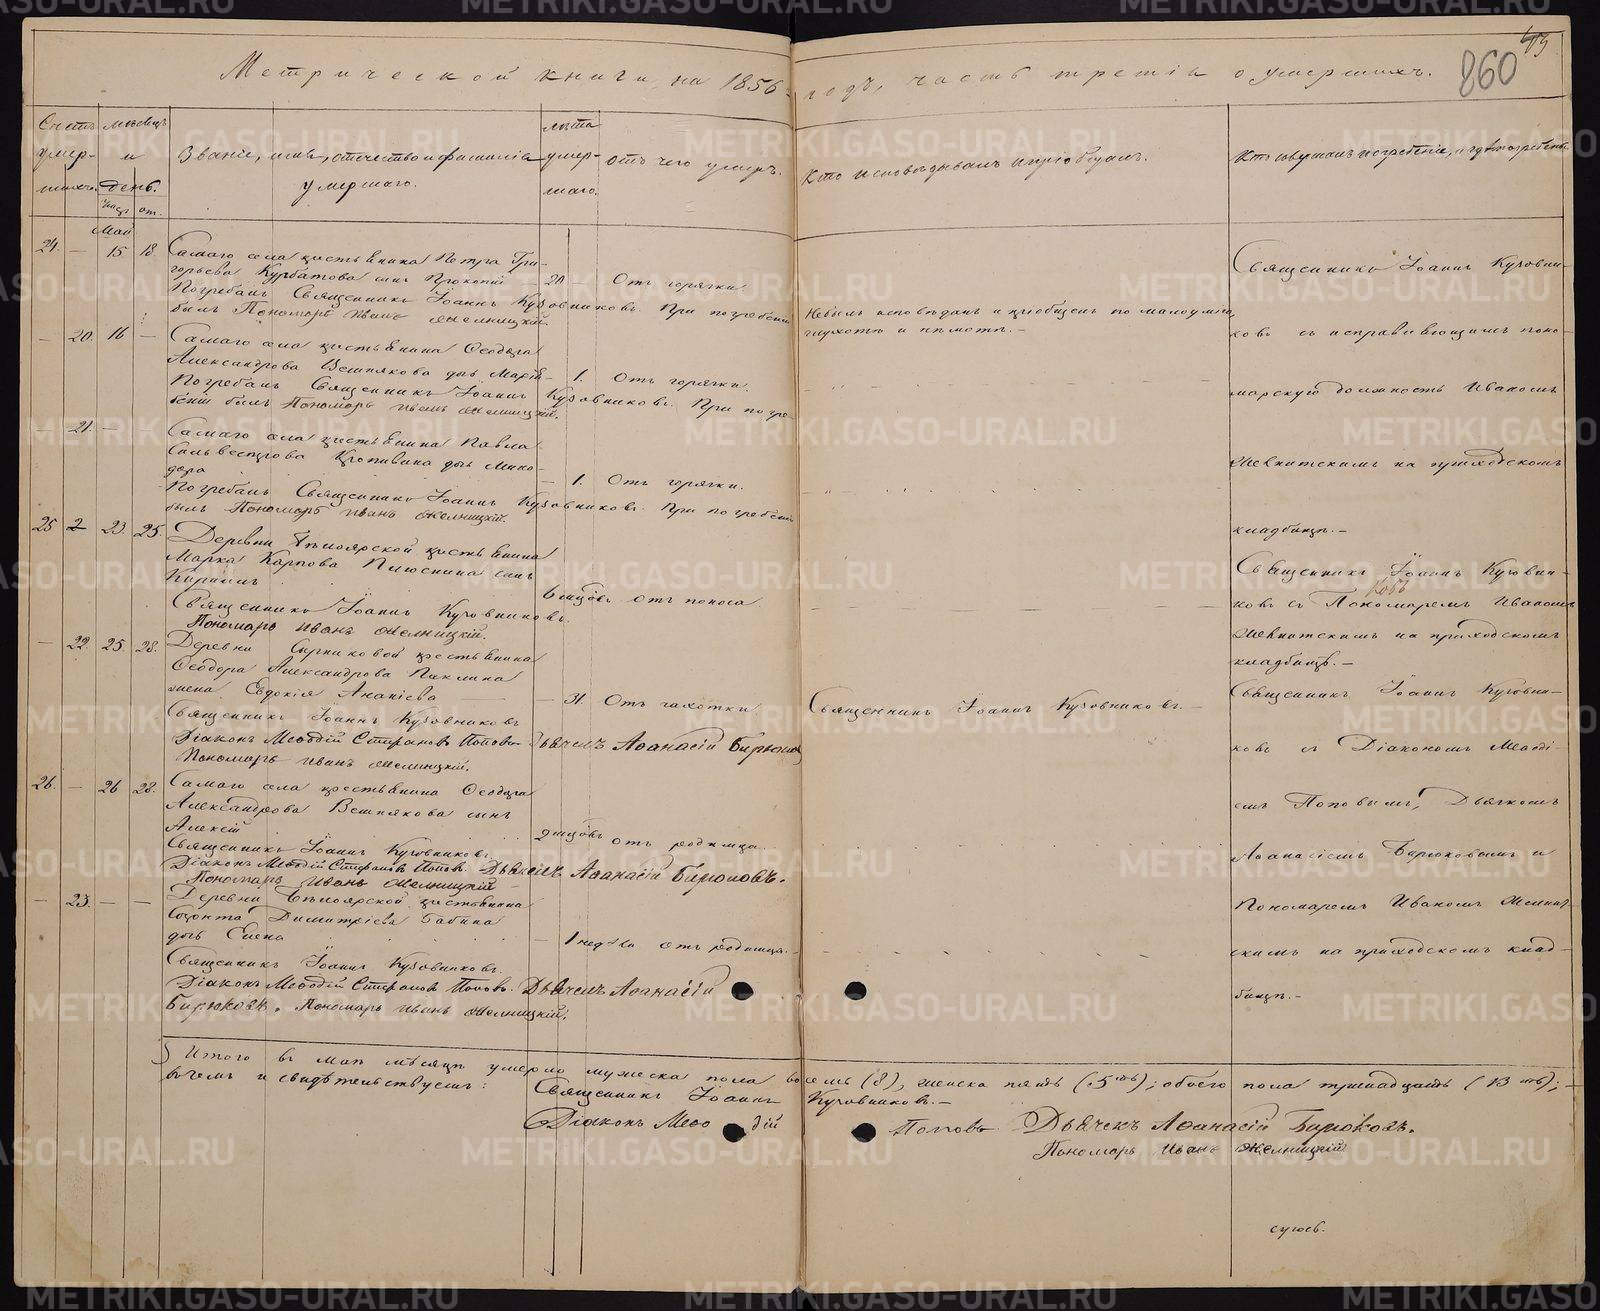 Метрической книги, на 1856 годъ, часть третія о умершихъ.
860
Счетъ умер- шихъ.
мѣсяцъ и день.
Званіе, имя, отчество и фамилія
умершаго.
лѣта умер- шаго.
отъ чего умеръ.
Кто исповѣдывалъ и пріобщалъ.
Кто совершалъ погребеніе, и гдѣ погребены
Май
24. — 15 18.
Самаго села крестьянина Петра Гри-
горьева Курбатова сынъ Прокопій
20 — Отъ горячки.
Погребалъ Священникъ Іоаннъ Кузовниковъ. При погребеніи
былъ Пономарь Иванъ Желницкій.
Небылъ исповѣданъ и пріобщенъ по малоумію,
глухотѣ и нѣмотѣ. —
— 20. 16 —
Самаго села крестьянина Ѳеодора
Александрова Вешнякова дочь Марія —
1. Отъ горячки.
Погребалъ Священникъ Іоаннъ Кузовниковъ. При погре-
беніи былъ Пономарь Иванъ Желницкій.
— 21. —
Самаго села крестьянина Павла
Сильвестрова дочь Мино-
дора
— 1. Отъ горячки.
Погребалъ Священникъ Іоаннъ Кузовниковъ. При погребеніи
былъ Пономарь Иванъ Желницкій.
25 2 23. 25.
Деревни Бѣлоярской крестьянина
Марка Карпова Плюснина сынъ
Кириллъ
6 мцовъ отъ поноса
Священникъ Іоаннъ Кузовниковъ.
Пономарь Иванъ Желницкій.
— 22. 25. 28.
Деревни крестьянина
Ѳеодора Александрова Паклина
жена Евдокія Ананіева
— 31. Отъ чахотки
Священникъ Іоаннъ Кузовниковъ. —
Священникъ Іоаннъ Кузовниковъ
Діаконъ Меѳодій Стефановъ Поповъ Дьячекъ Аѳанасій Бирюков
Пономарь Иванъ Желницкій.
26. — 26 28.
Самаго села крестьянина Ѳеодора
Александрова Вешнякова сынъ
Алексій
2 мцовъ отъ родимца.
Священникъ Іоаннъ Кузовниковъ.
Діаконъ Меѳодій Стефановъ Поповъ. Дьячекъ Аѳанасій Бирюковъ.
Пономарь Иванъ Желницкій
— 23. — —
Деревни Бѣлоярской крестьянина
Созонта Димитріева Бабина
дочь Елена
— 1 недѣли отъ родимца.
Священникъ Іоаннъ Кузовниковъ.
Діаконъ Меѳодій Стефановъ Поповъ. Дьячекъ Аѳанасій
Бирюковъ. Пономарь Иванъ Желницкій.
Священникъ Іоаннъ Кузовни-
ковъ съ исправляющимъ поно-
марскую должность Иваномъ
Желнитскимъ на приходскомъ
кладбищѣ. —
Священникъ Іоаннъ Кузовни-
ковъ съ Пономаремъ Иваномъ
Желнитскимъ на приходскомъ
кладбищѣ. —
Священникъ Іоаннъ Кузовни-
ковъ съ Діакономъ Меѳоді-
емъ Поповымъ, Дьячкомъ
Аѳанасіемъ Бирюковымъ и
Пономаремъ Иваномъ Желнит-
скимъ на приходскомъ клад-
бищѣ. —
Итого въ маѣ мѣсяцѣ умерло мужеска пола восемь (8), женска пять (5ть); обоего пола тринадцать (13ть); —
въ чемъ и свидѣтельствуемъ: Священникъ Іоаннъ Кузовниковъ. —
Діаконъ Меѳодій Поповъ Дьячекъ Аѳанасій Бирюковъ.
Пономарь Иванъ Желницкій
METRIKI.GASO-URAL.RU